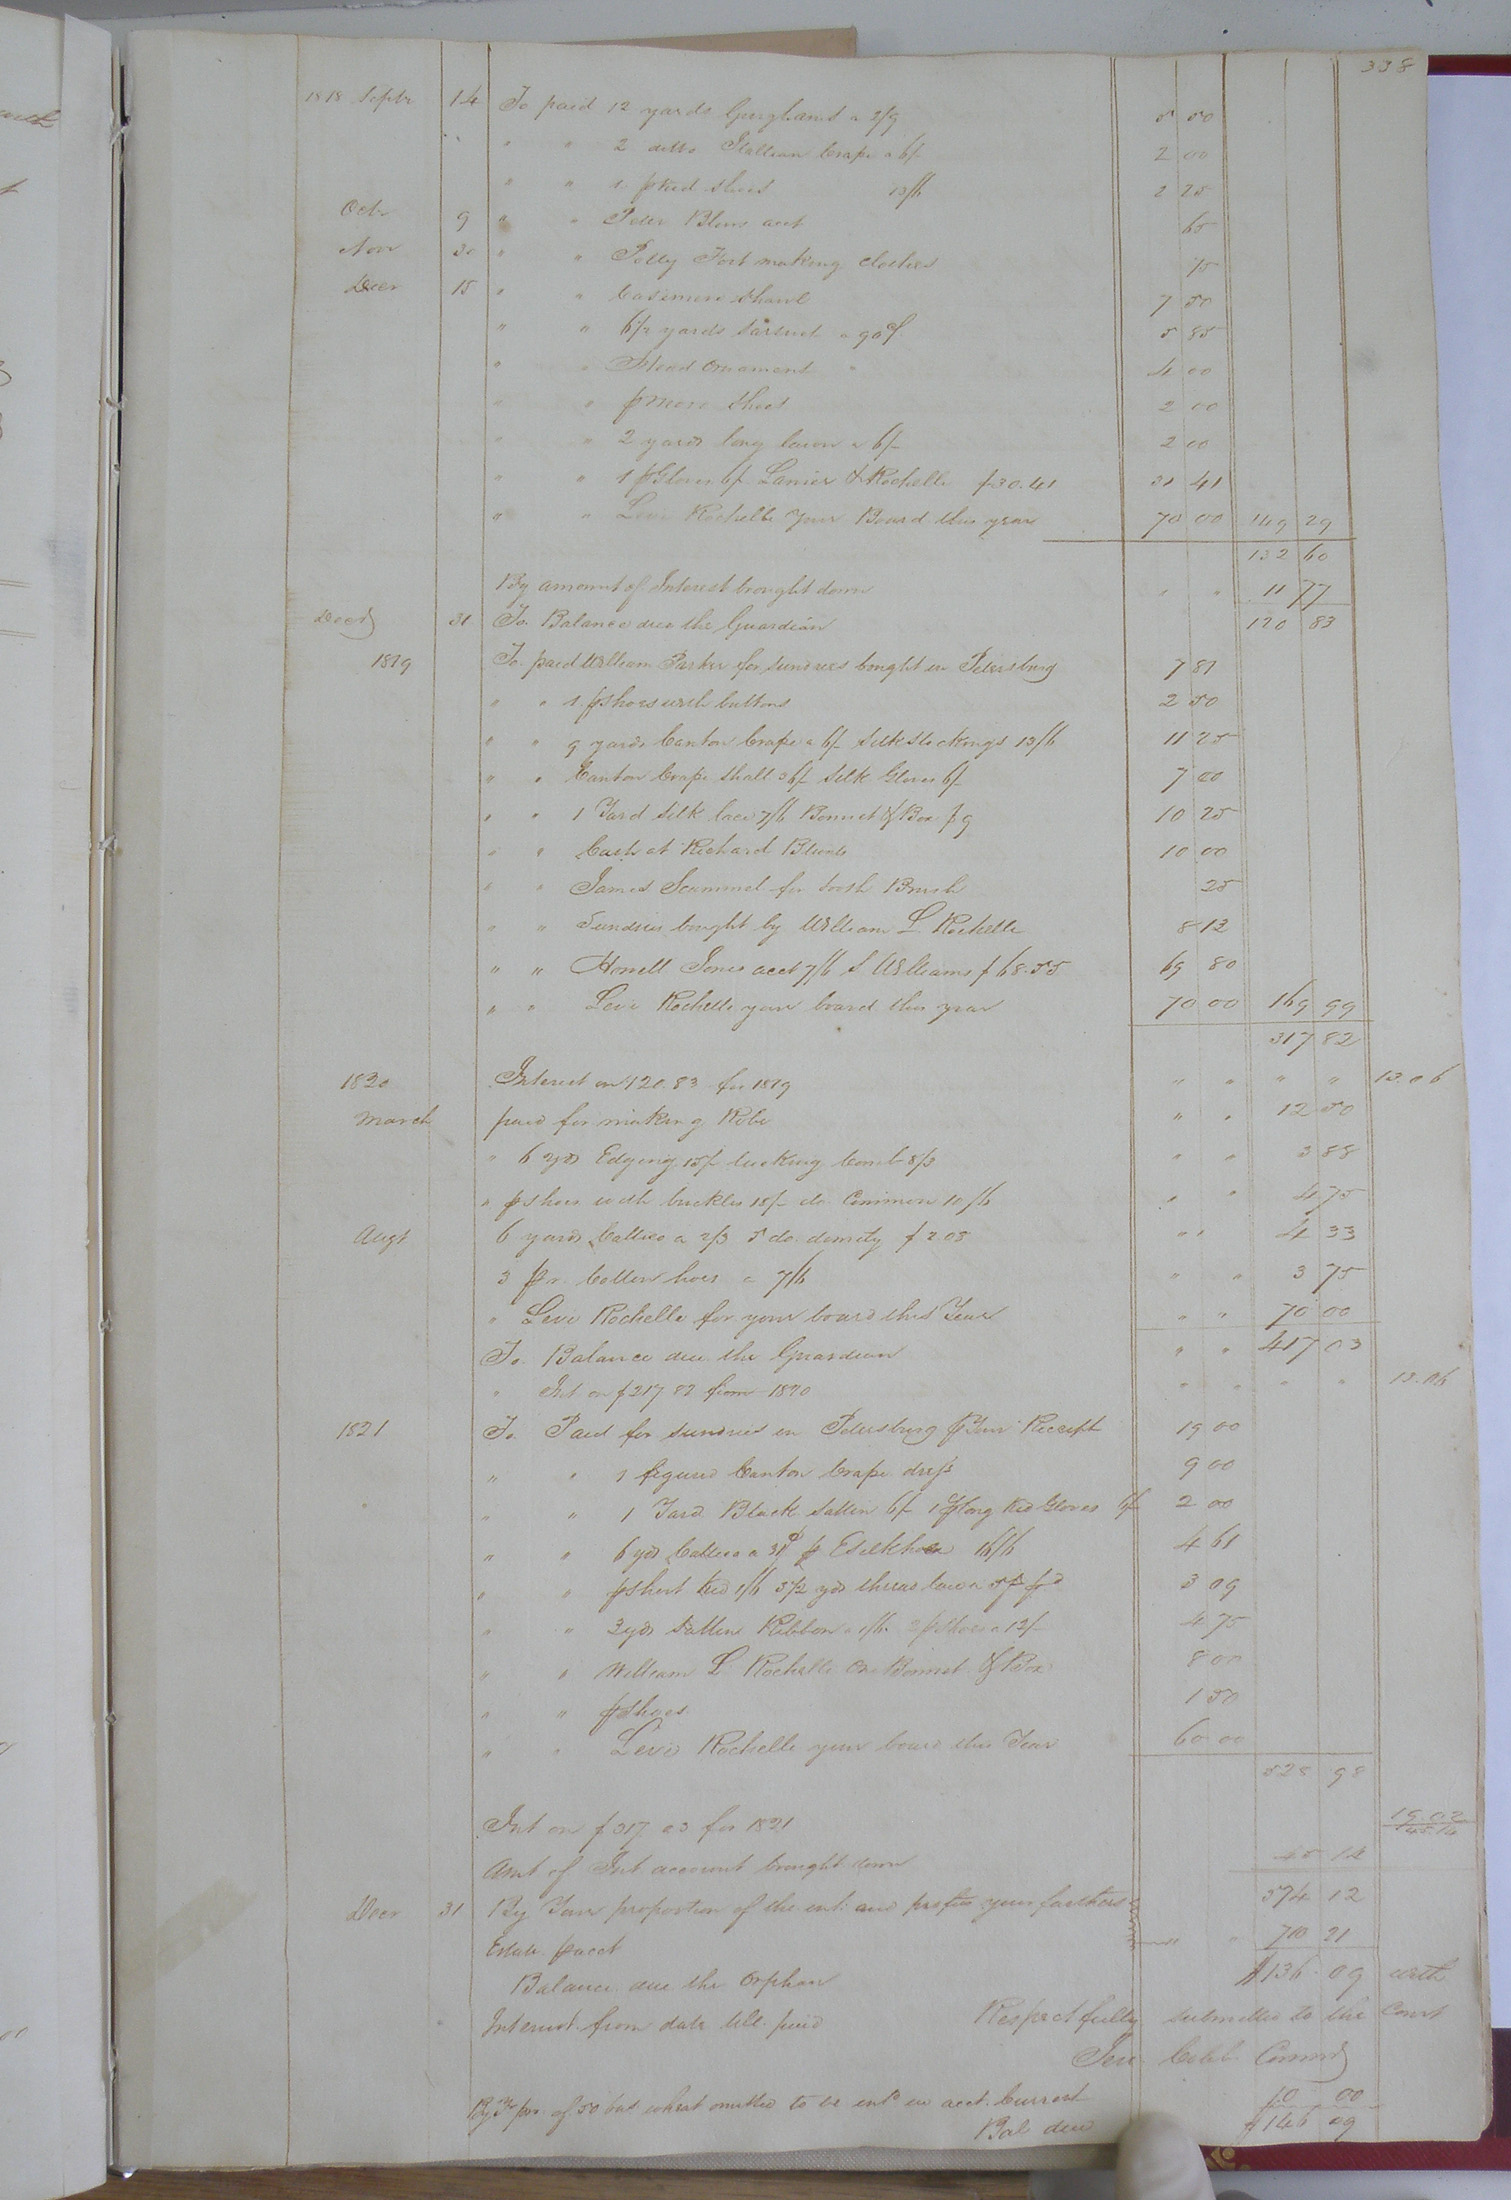 338
1818 Septr 14 To paid 12 yards Guighams a 2/9 5 50
" " 2 ditto Itallian Crape a 6/ 2 00
" " 1 pr Kid Shoes 13/6 2 25
Octr 9 " " Peter Blows acct 65
Novr 30 " " Polly Fort making clothes 75
Decr 15 " " Casimere Shawl 7 50
" " 6 1/2 yards Sarsnet a 90c 5 85
" " Head Ornament " 4 00
" " pr Moro Shoes 2 00
" " 2 yards long lawn a 6/ 2 00
" " 1 pr Gloves 6/ Lanier & Rochelle $30.41 31 41
" " Levi Rochelle Your Board this year 70 00 149 29
132 60
By amount of Interest brought down " " 11 77
Decr 31 To Balance due the Guardian 120 83
1819 To paid William Parker for sundries bought in Petersburg 7 81
" " 1 pr shoes with buttons 2 50
" " 9 yards Canton Crape a 6/ Silk Stockings 13/6 11 25
" " Canton Crape Shall 36/ Silk Gloves 6/ 7 00
" " 1 Yard Silk lace 7/6 Bonnet & Box $9 10 25
" " Cash at Richard Blunts 10 00
" " James Scammel for tooth Brush 25
" " Sundries bought by William L Rochelle 8 12
" " Howell Jones acct 7/6 S Williams $68.55 69 80
" " Levi Rochelle your board this year 70 00 169 99
317 82
1820 Interest on 120.83 for 1819 " " " " 13.06
March paid for making Robe " " 12 50
" 6 yds Edging 15/ tucking Comb 8/3 " " 3 88
" pr shoes with buckles 18/ do Common 10/6 " " 4 75
Augt 6 yards Callico a 2/3 5 do. dimity $2.08 " " 4 33
3 pr. Cotten hose a 7/6 " " 3 75
" Levi Rochelle for your board this Year " " 70 00
To Balance due the Guardian " " 417 03
" Int on $217 82 from 1820 " " " " 13.06
1821 To Paid for sundries in Petersburg pr Your Receipt 19 00
" " 1 figured Canton Crape dress 9 00
" " 1 Yard Black Sattin 6/ 1 pr long Kid Gloves 6/ 2 00
" " 6 yds Callico a 31 pr E silk hose 16/6 4 61
" " pr short Kid 1/6 5 1/2 yds thread lace a 3 09
" " 3 yds Sattin Ribbon a 1/6 2 pr Shoes a 12/ 4 75
" " William L Rochelle One Bonnet & Box 8 00
" " pr Shoes 1 50
" " Levi Rochelle your board this Year 60 00
528 98
Int on $317 03 for 1821 19.02
45.14
Amt of Int account brought down 45 14
574 12
Decr 31 By Your proportion of the ent: and profits your farthers
Estate pr acct " " 710 21
Balance due the Orphan $136.09 with
Interest from date till paid Respectfully submitted to the Court
Jere Cobb. Commr
By Yr pro. of 50 bus wheat omitted to be entd in acct. Current 10 00
Bal due $146 09